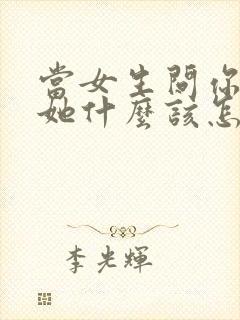 當女生問你
她什麼該怎
李光輝